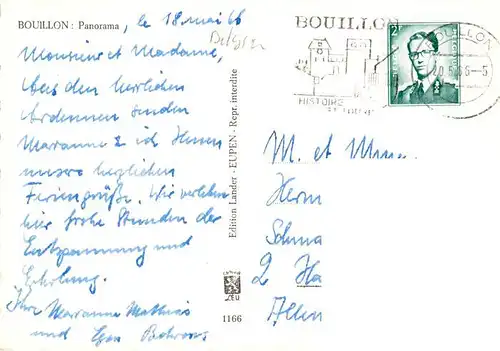 BOUILLON : Panorama, le 18 mai 66
Belgien
Monsieur et Madame,
Aus den herrlichen
Ardennen senden
Marianne & ich Ihnen
unsere herzlichen
Feriengrüße. Wir verleben
hier frohe Stunden der
Entspannung und
Erholung.
Ihre Marianne Mathieu
und Egon
Edition Lander - EUPEN - Repr. interdite
1166
BOUILLON
HISTOIRE
2
BOUILLON
M. et Mme.
Herrn
2 Ha